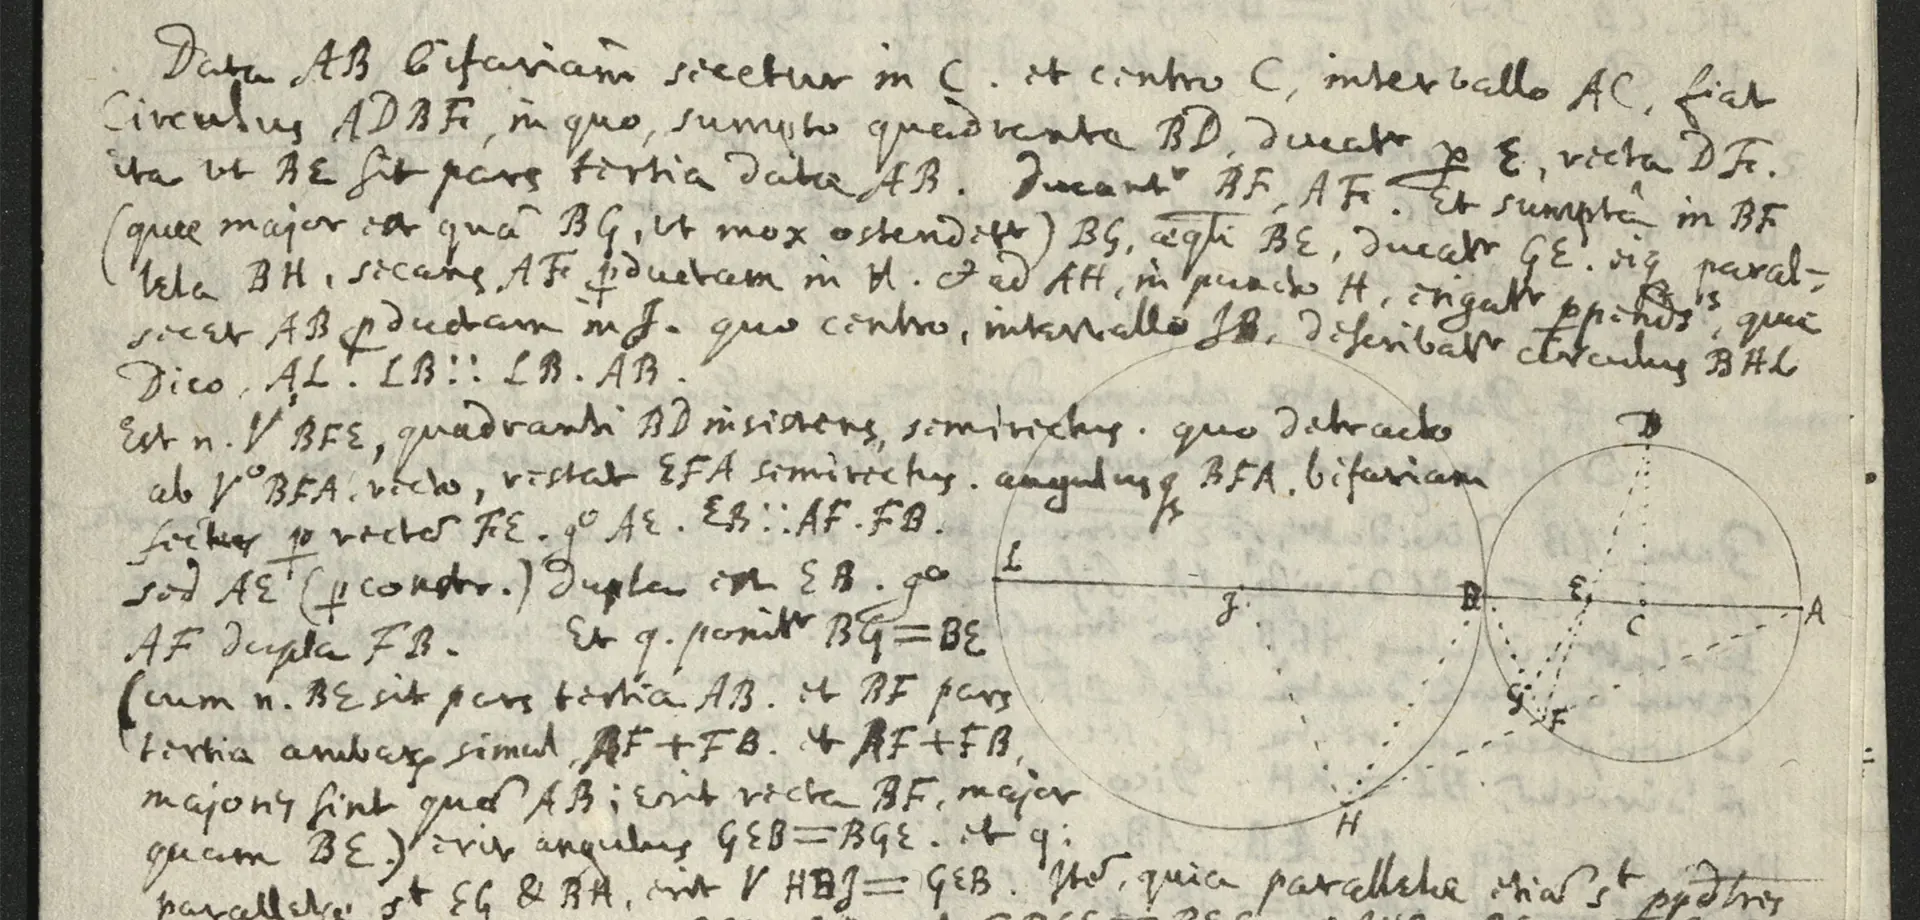 Data AB bifariam secetur in C. et centro C, intervallo AC, fiat
Circulus ADBF, in quo, sumpto quadrante BD, ducatr p E, recta DF.
ita ut BE sit pars tertia datae AB. Ducantr BF, AF. Et sumptâ in BF
(quae major est quā BG, ut mox ostendetr) BG, aeqli BE, ducatr GE. eiq paral-
lela BH, secans AF pductam in H. & ad AH, in puncto H, erigatr ppendris, quae
secet AB pductam in J. quo centro, intervallo JB, describatr circulus BHL
Dico, AL. LB :: LB. AB.
Est n. V BFE, quadranti BD insistens, semirectus. quo detracto
ab Vo BFA, recto, restat EFA semirectus. angulusq BFA, bifariam
sectus p rectā FE. go AE. EB :: AF. FB.
sed AE (p constr.) dupla est EB. go
AF dupla FB. Et q. ponitr BG = BE
(cum n. BE sit pars tertia AB. et BF pars
tertia ambarum simul, AF + FB. et AF + FB,
majores sint quā AB; erit recta BF, major
quam BE.) erit angulus GEB = BGE. et q:
parallelae st EG & BH, erit V HBJ = GEB. Itē, quia parallelae etiā st
D
L
J
B
E
C
A
G
F
H